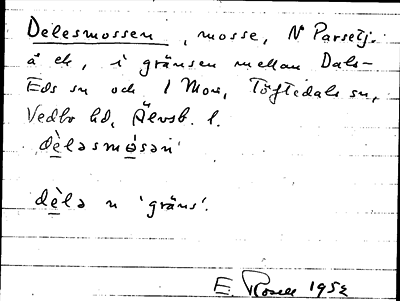 Delesmossen, mosse, N Parsetj.
å ek, i gränsen mellan Dals-
Eds sn och l Mon, Töftedals sn,
Vedbo hd, Älvsb. l.
dèləsmɷ̀sən
dèlə n 'gräns'.
E. Rosell 1952